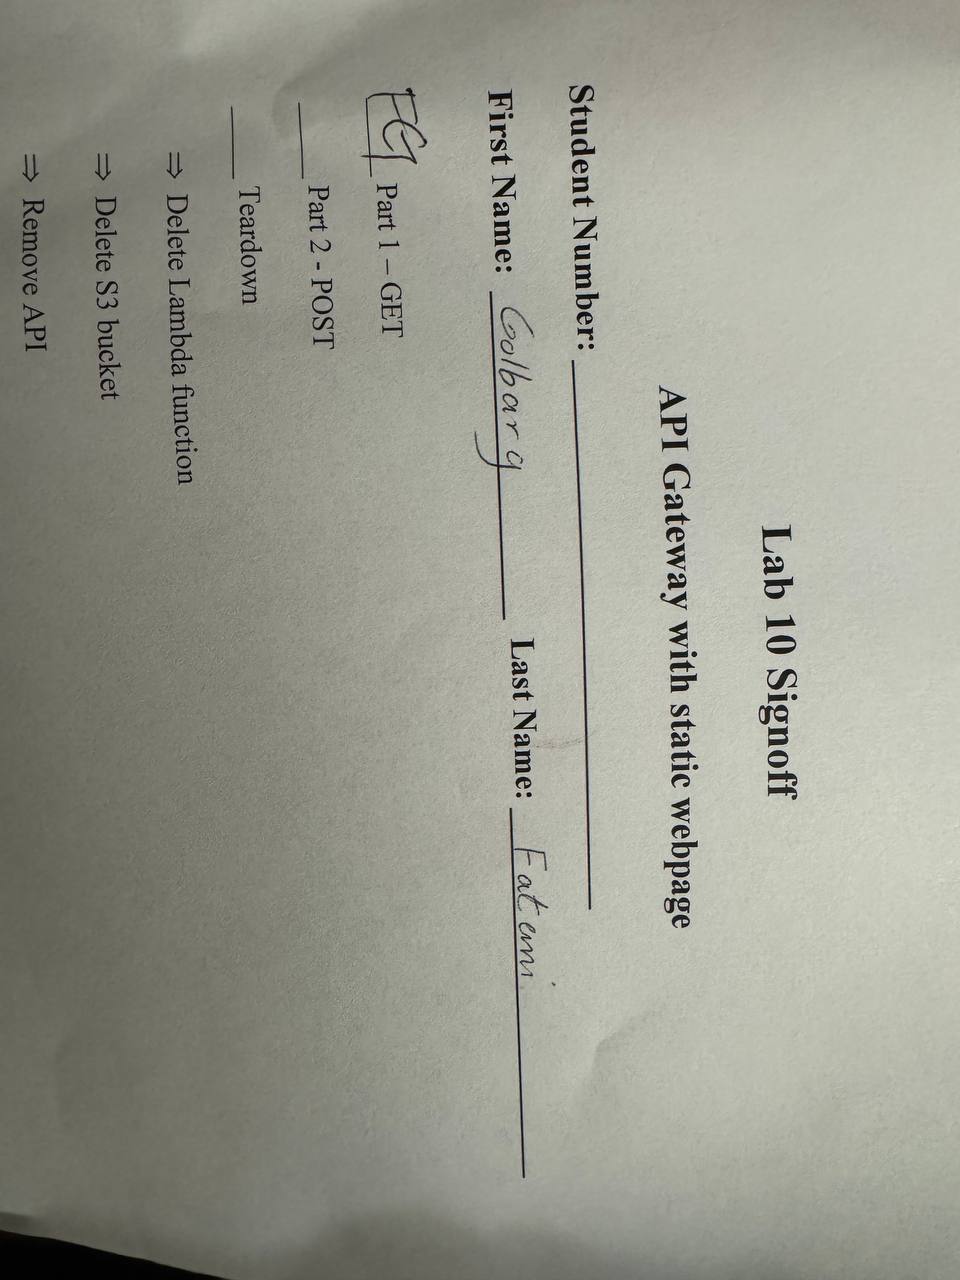 Lab 10 Signoff
API Gateway with static webpage
Student Number: ____________________
First Name: Golbarg Last Name: Fatemi
FG Part 1 – GET
_____ Part 2 - POST
_____ Teardown
⇒ Delete Lambda function
⇒ Delete S3 bucket
⇒ Remove API